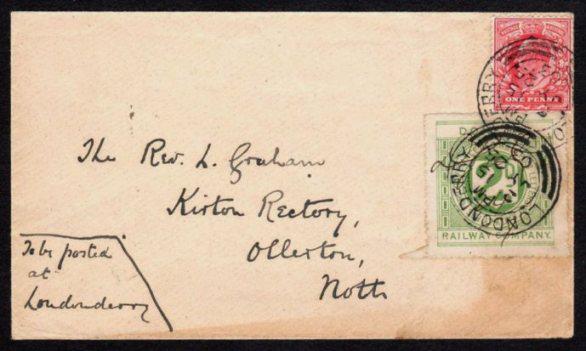 ONE PENNY
2D
RAILWAY COMPANY.
LONDONDERRY
The Rev. L. Graham
Kirton Rectory,
Ollerton,
Notts
To be posted
at
Londonderry